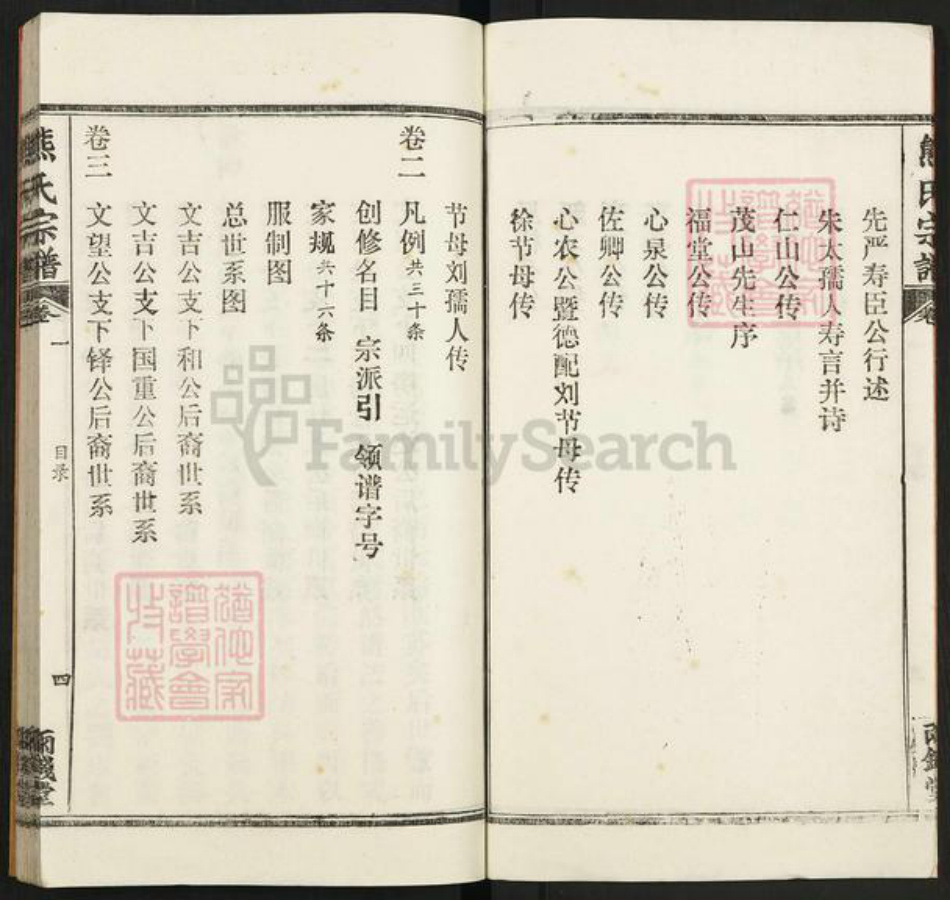 熊氏宗谱
卷
先严寿臣公行述
朱太孺人寿言并诗
仁山公传
茂山先生序
福堂公传
心泉公传
佐卿公传
心农公暨德配刘节母传
徐节母传
节母刘孺人传
卷二
凡例共三十条
创修名目 宗派引 领谱字号
家规共十六条
服制图
总世系图
文吉公支下和公后裔世系
文吉公支下国重公后裔世系
卷三
文望公支下铎公后裔世系
熊氏宗谱
卷一
目录
四
两钱堂
FamilySearch